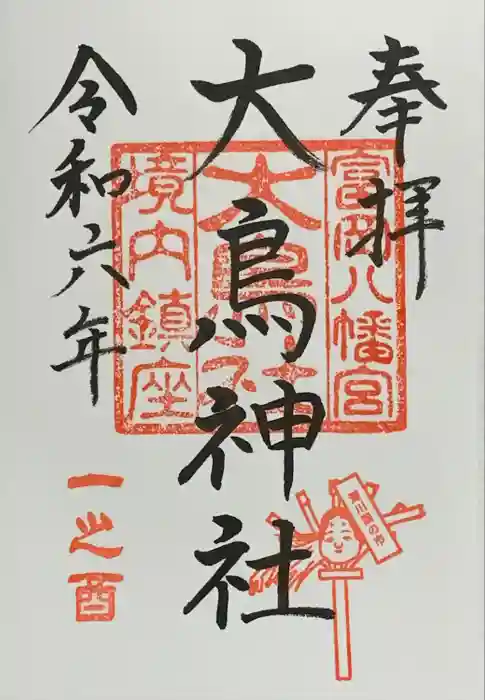 奉拝
富岡八幡宮
大鳥神社
大鳥神社
境内鎮座
令和六年
一之酉